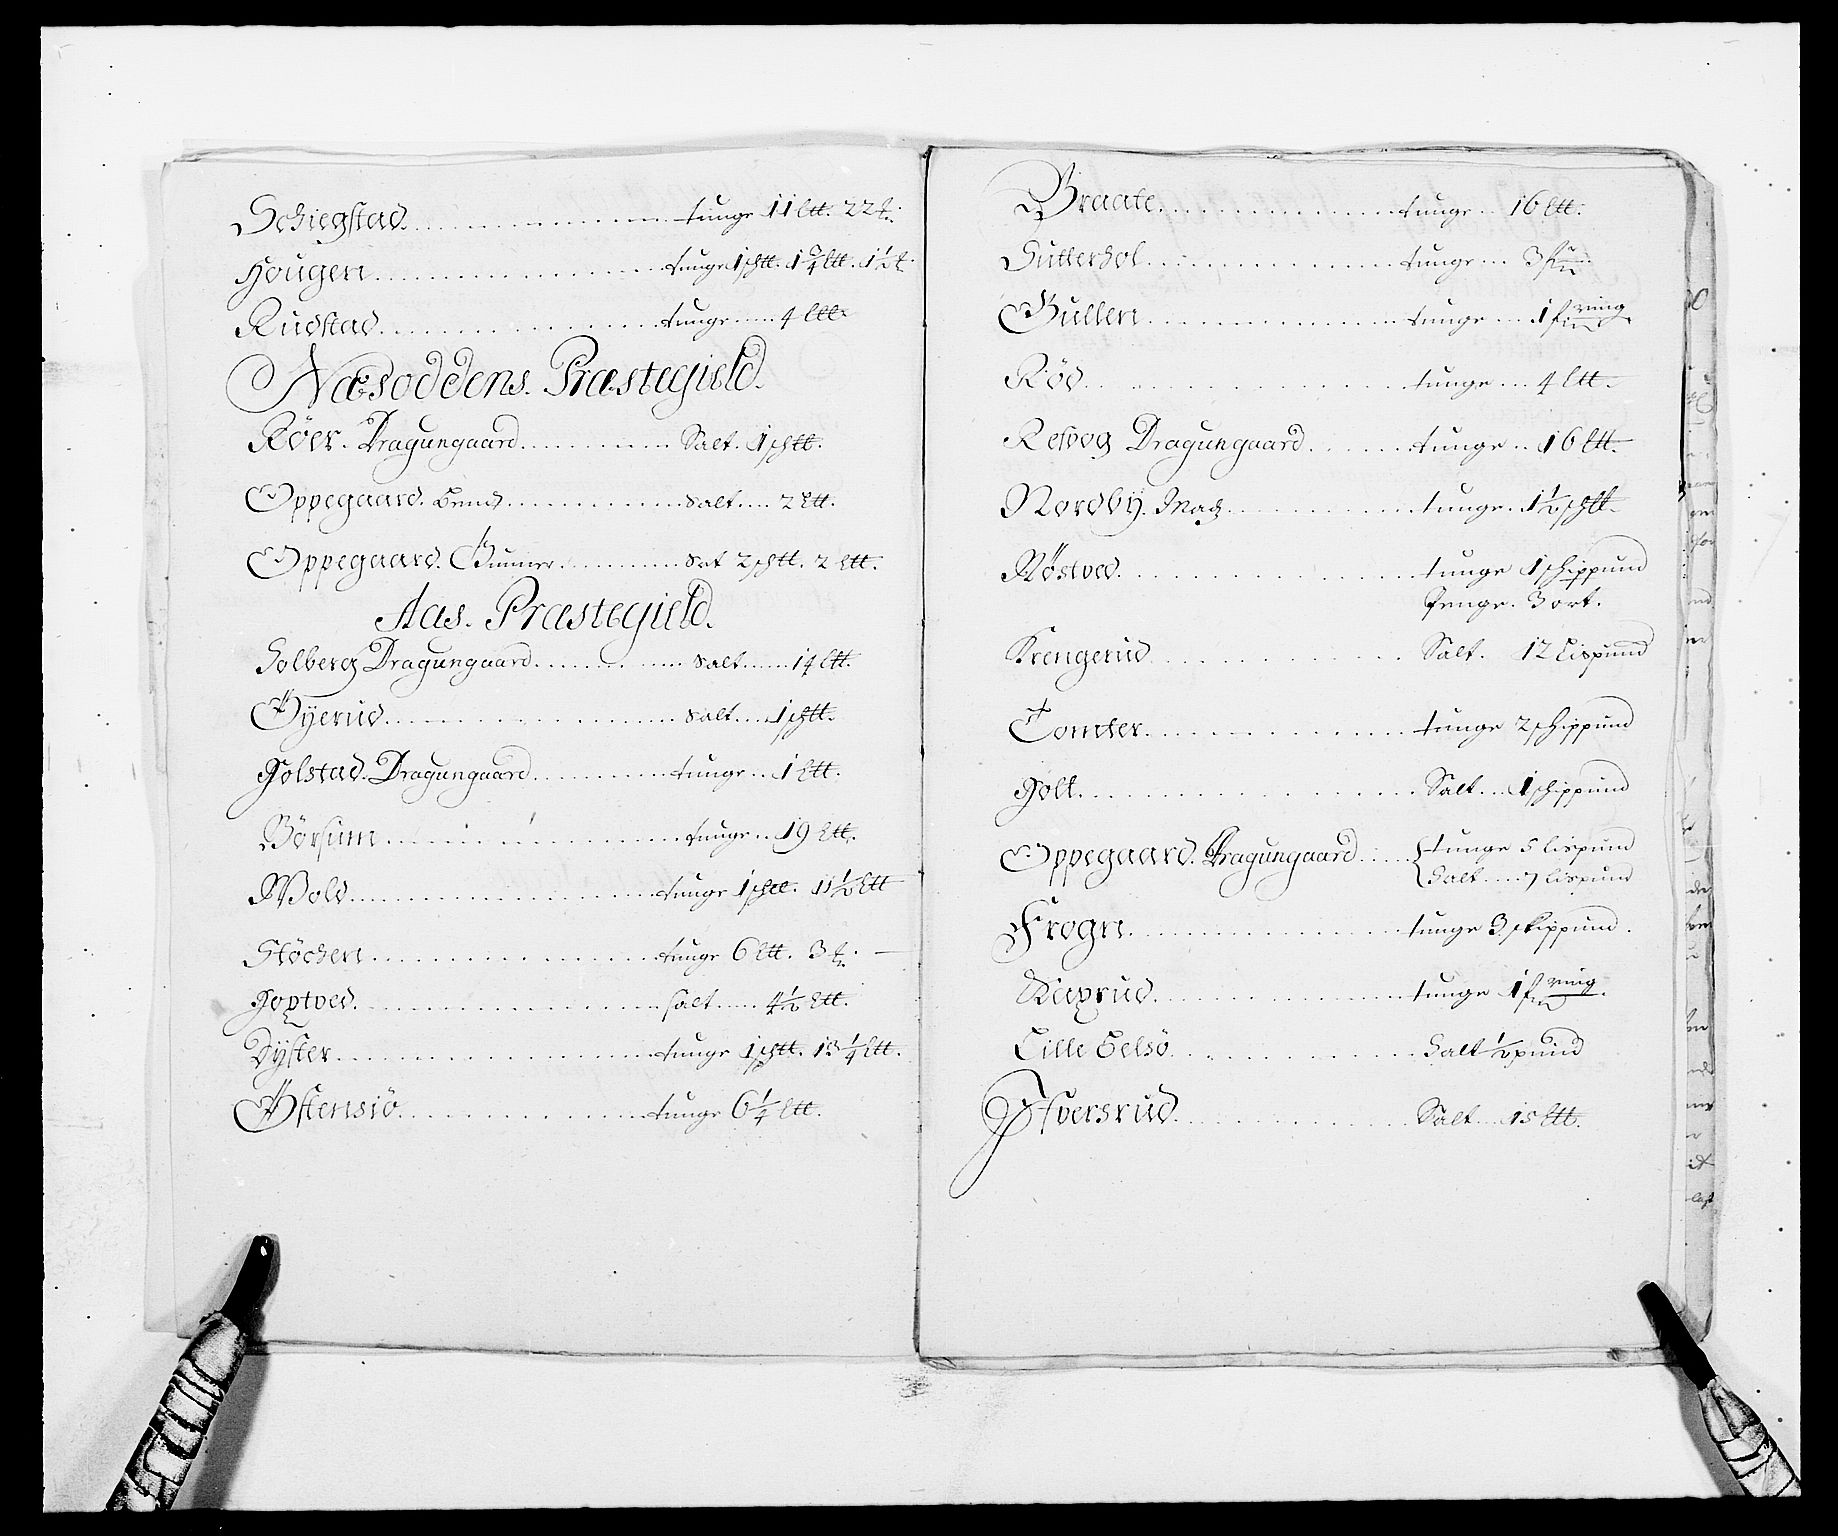 Schiegstad. tunge 11 Ltt. 22 t.
Hougen tunge 1 schtt. 1 3/4 Ltt. 1 1/2 t.
Rudstad tunge 4 Ltt.
Næsoddens. Præstegield.
Röer. Dragungaard Salt. 1 schtt.
Oppegaard. Lend Salt 2 Ltt.
Oppegaard. Gunner Salt 2 schtt. 2 Ltt.
Aas. Præstegield.
Solberg Dragungaard Salt 14 Ltt.
Öyerud Salt 1 schtt.
Holstad. Dragungaard tunge 1 Ltt.
Börsum tunge 19 Ltt.
Wold tunge 1 schtt. 11 1/2 Ltt
Stöchen tunge 6 Ltt. 3 t.
Hogtved. Salt 4 1/2 Ltt.
Dyster tunge 1 schtt. 13 1/4 Ltt.
Östensiö tunge 6 1/4 Ltt.
Braate tunge 16 Ltt.
Sutterhol tunge 3
Gullen tunge 1 fiering
Röd tunge 4 Ltt.
Resvog Dragungaard tunge 16 Ltt.
Nordby. Mag tunge 1 1/2 schtt.
Röstved. tunge 1 schippund
Penge. 3 ort.
Krengerud Salt. 12 Lispund
Tomter tunge 2 schippund
Holt Salt 1 schippund
Oppegaard. Dragungaard tunge 5 lispund
Salt 7 lispund
Frogn tunge 3 schippund.
Kaxrud tunge 1 fiering.
Lille Selsö Salt 1/2 pund
Ifversrud Salt 15 Ltt.